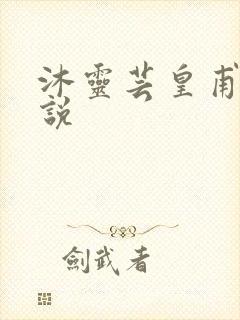 沐靈芸皇甫
說
劍武者